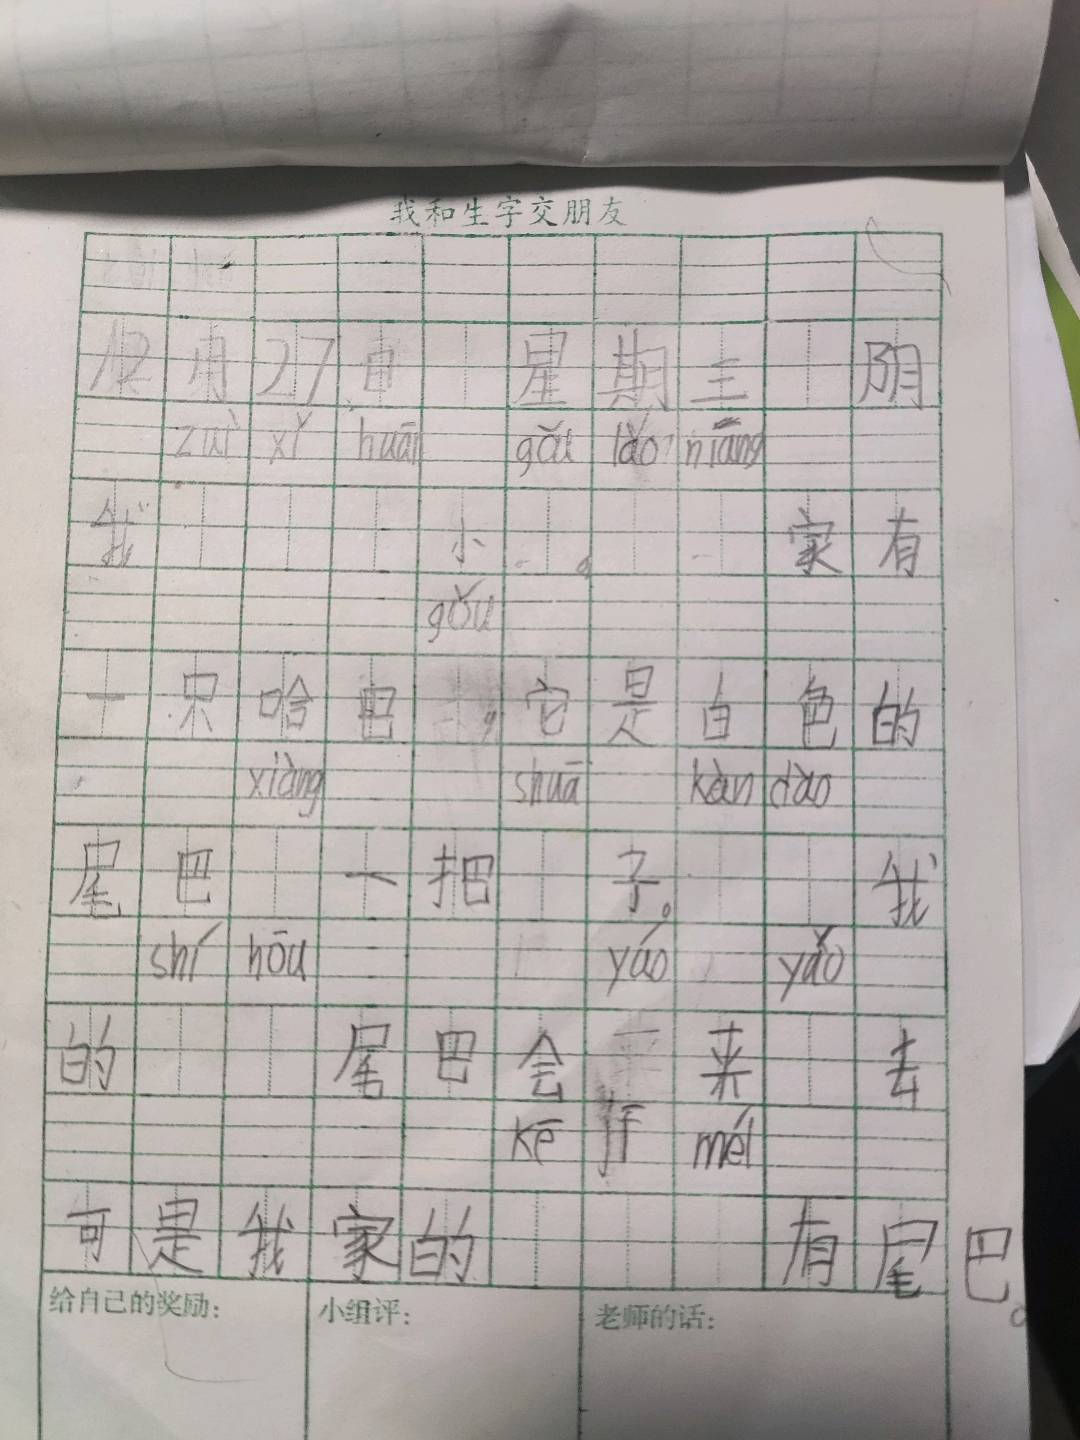 我和生字交朋友
12月27日 星期三 阴
zuì xǐ huān gǒu lǎo niāng
我 小 。 家有
gǒu
一只哈巴 ，它是白色的
xiàng shuā kàn dào
尾巴 一把 子。 我
shí hōu yáo yǎo
的 尾巴会 来 去
kē jī méi
可是我家的 有尾巴。
给自己的奖励： 小组评： 老师的话：